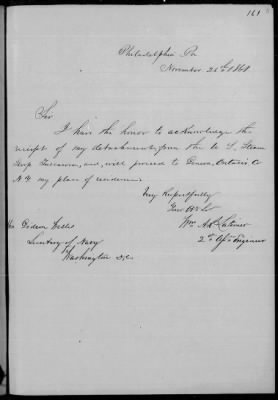 161
Philadelphia Pa
November 26th 1861
Sir
I have the honor to acknowledge the
receipt of my detachment from the U. S. Steam
Sloop Tuscarora, and, will proceed to Geneva, Ontario Co
N Y my place of residence
Very Respectfully
Your Obt St
Wm A H Latimer
2nd Asst Engineer
Hon Gideon Welles
Secretary of Navy
Washington D C